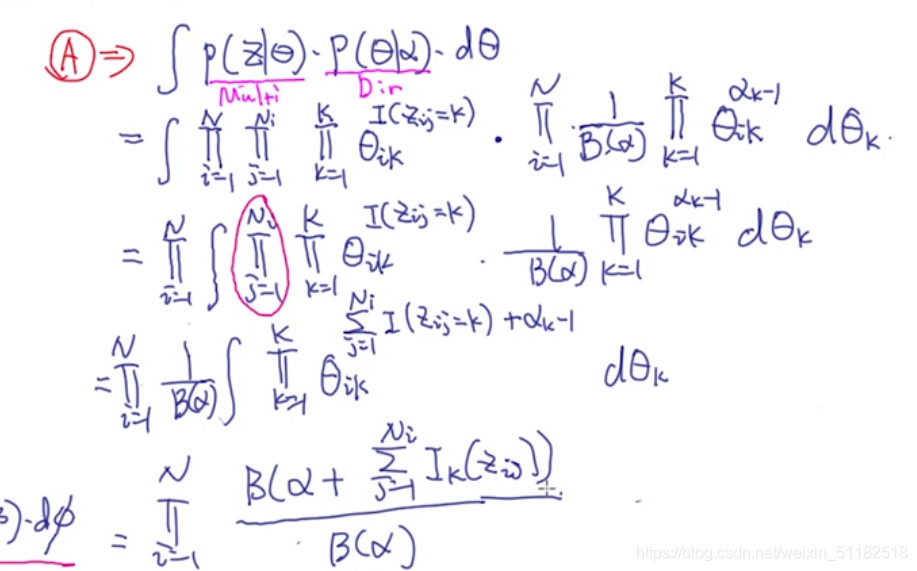 Ⓐ ⇒ ∫ P(Z|θ) · P(θ|α) · dθ
Multi Dir
= ∫ ∏_{i=1}^{N} ∏_{j=1}^{Ni} ∏_{k=1}^{K} θ_{ik}^{I(Z_{ij}=k)} · ∏_{i=1}^{N} · 1/B(α) ∏_{k=1}^{K} θ_{ik}^{αk-1} dθk.
= ∏_{i=1}^{N} ∫ ∏_{j=1}^{Ni} ∏_{k=1}^{K} θ_{ik}^{I(Z_{ij}=k)} · 1/B(α) ∏_{k=1}^{K} θ_{ik}^{αk-1} dθk
= ∏_{i=1}^{N} 1/B(α) ∫ ∏_{k=1}^{K} θ_{ik}^{∑_{j=1}^{Ni} I(Z_{ij}=k) + αk-1} dθk
)·dϕ = ∏_{i=1}^{N} B(α + ∑_{j=1}^{Ni} I_k(Z_{ij})) / B(α)
https://blog.csdn.net/weixin_51182518